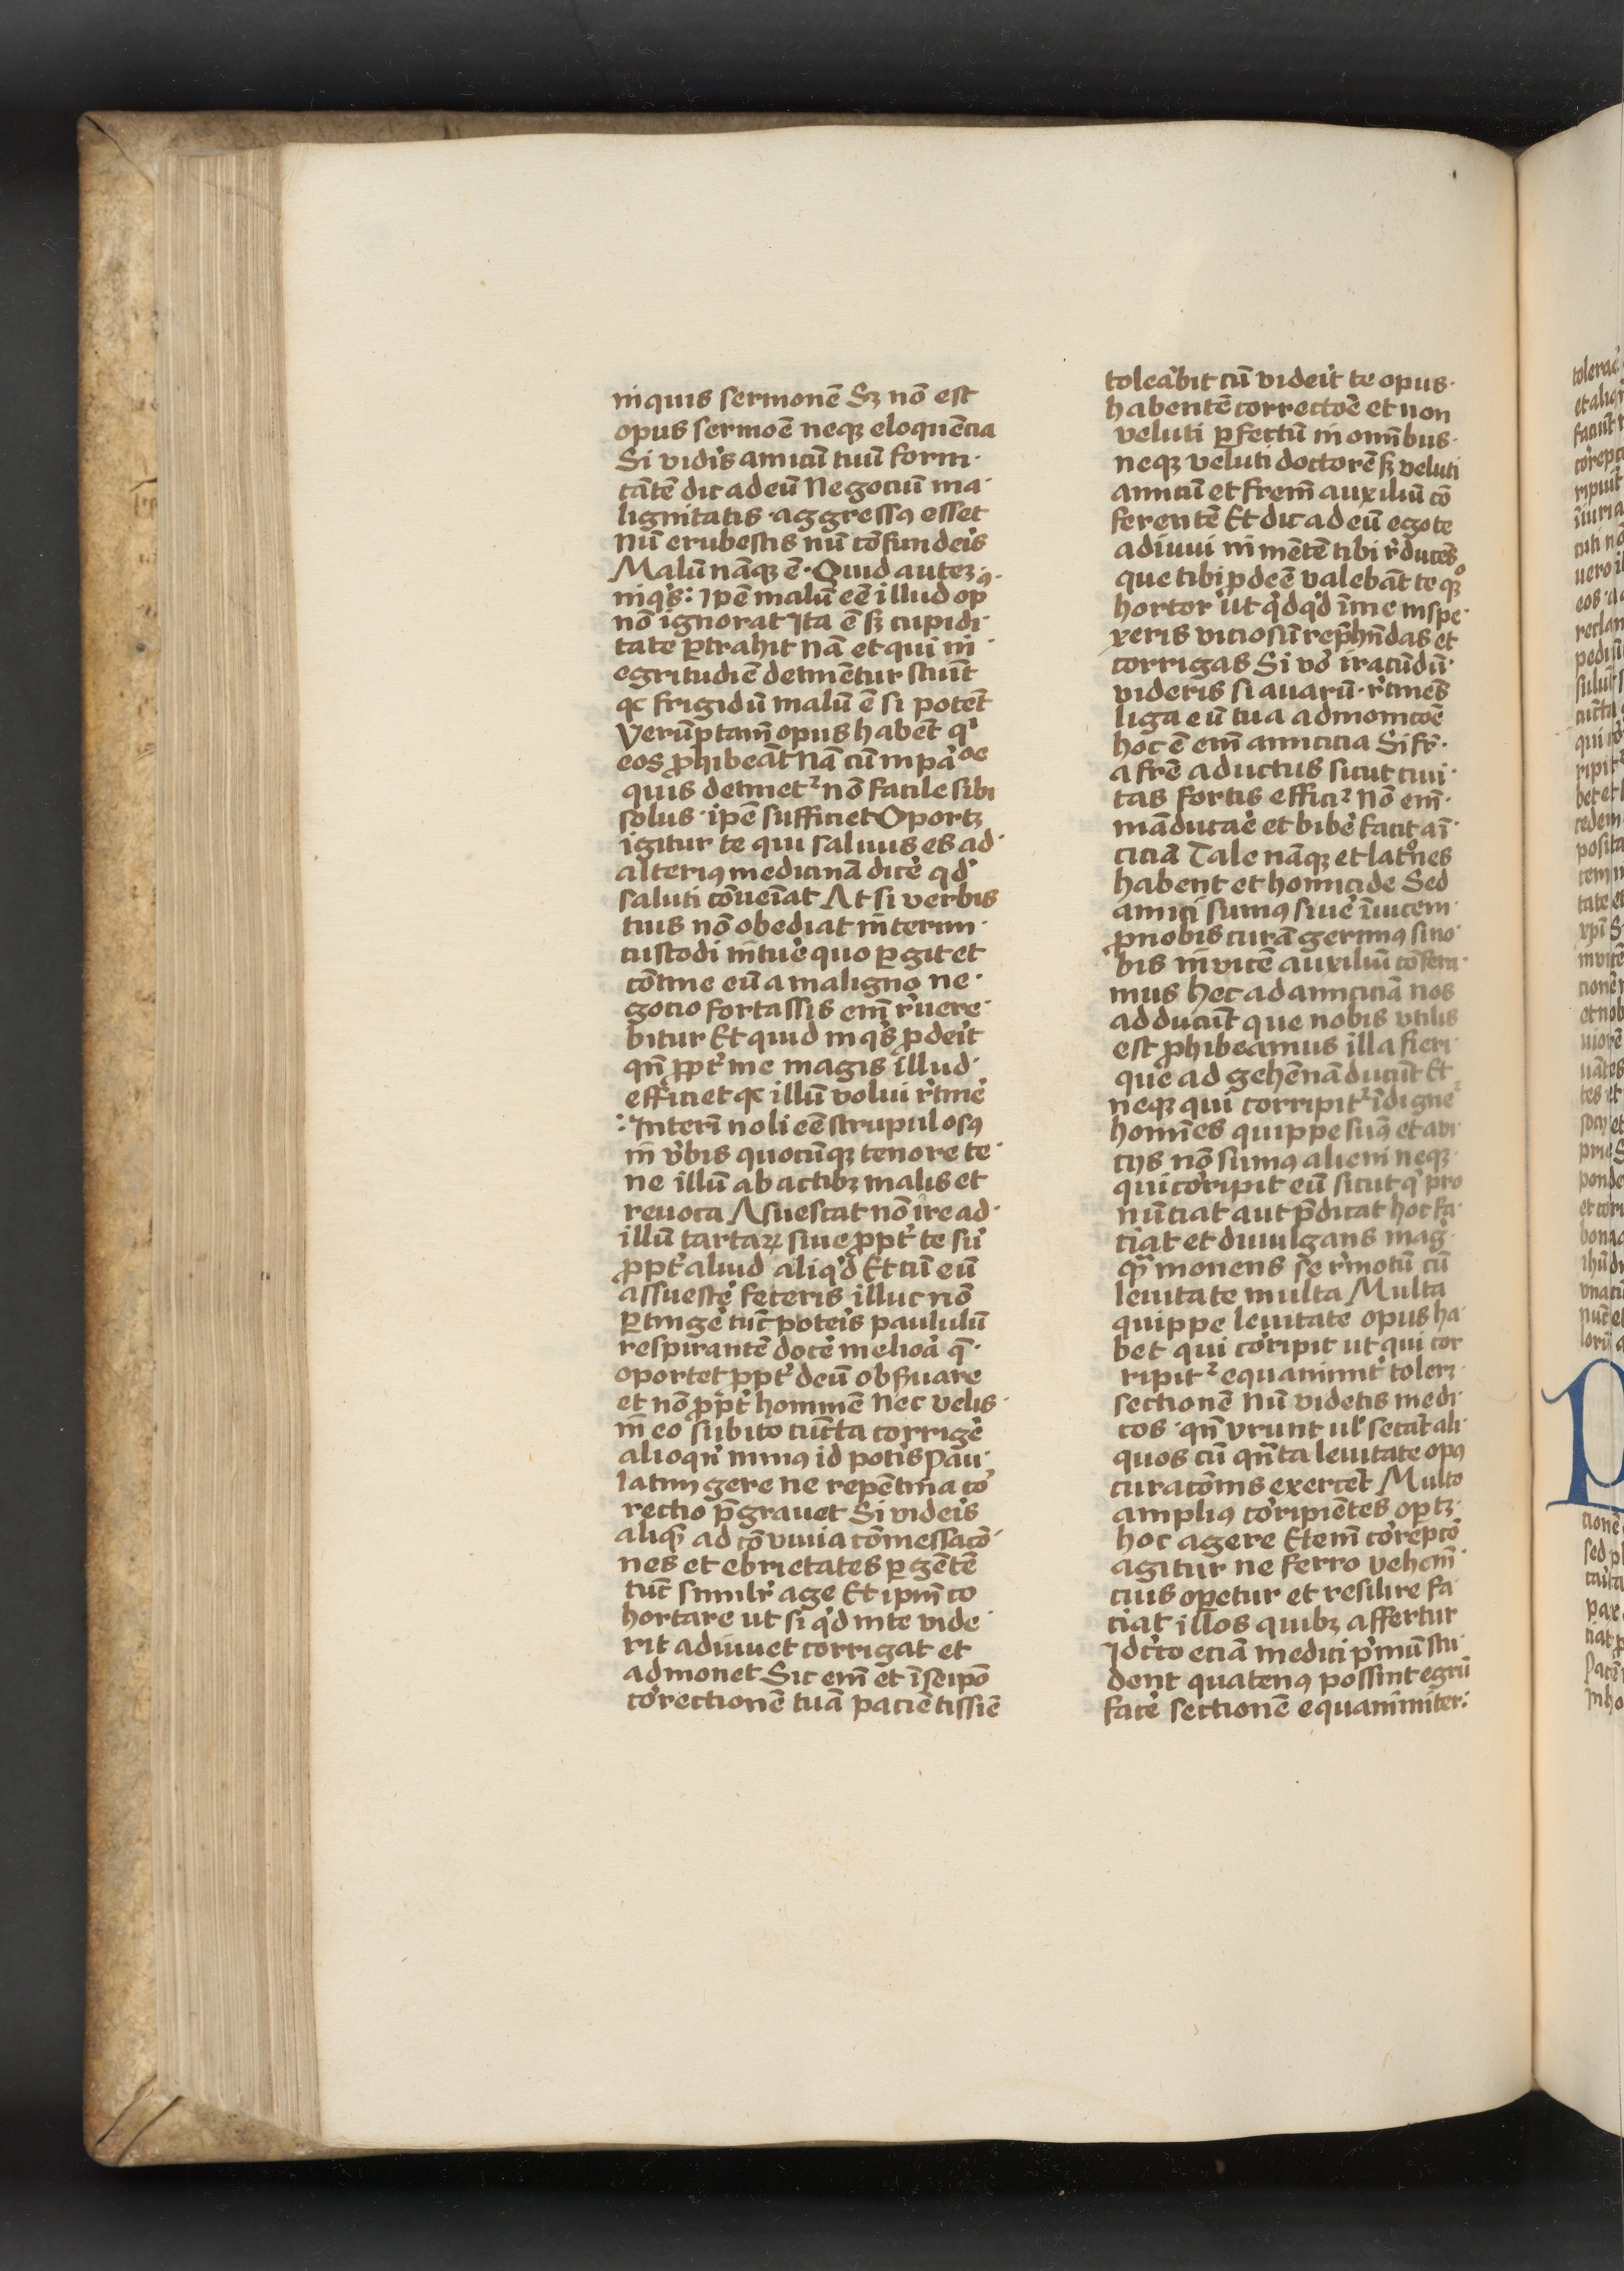 inquis sermonē Sꝫ nō est
opus sermoē neqꝫ eloquēcia
Si vidis amicū tuū forni·
cātē dic ad eū Negociū ma·
lignitatis aggressꝯ esset
Nū erubescis nū cōfunderis
Malū nāqꝫ ē · Quid auteꝫ
inqⁱs: Ipē malū eē illud opꝯ
nō ignorat Ita ē sꝫ cupidi·
tate ꝑtrahit Nā et qui in
egritudīe detinētur sciūt
qꝫ frigidū malū ē si potēt
Verūptamē opus habēt qⁱ
eos ꝓhibeāt Nā cū in paōe
quis detinetᷣ nō facile sibi
solus · ipē sufficiet Oportꝫ
igitur te qui saluus es ad·
alteriꝯ medicinā dicē qd̓
saluti cōueīat At si verbis
tuis nō obediat interim·
custodi intuē quo ꝑgit et
cōtine eū a maligno ne·
gocio fortassis em̄ r̓uere·
bitur Et quid inqⁱs ꝓderit
qn̄ ꝓpt̓ me magis illud·
efficiet qꝫ illū volui r̓tinē
Interī noli eē scrupulosꝯ
in v̓bis quocūqꝫ tenore te·
ne illū ab actibꝫ malis et
reuoca Asuescat nō ire ad·
illū tartaꝝ siue ꝓpt̓ te siū
ꝓpt̓ aliud aliqd̓ Et cū eū
assuescē feceris illuc nō
ꝑtingē tūc poteris paululū
respirantē docē meliora q̄·
oportet ꝓpt̓ deū obsꝰuare
et nō ꝓpt̓ hominē Nec velis·
in eo subito cūcta corrigē
alioqn̄ minꝯ id potis Pau·
latim gere ne repētina co
rectio p̄grauet Si videis
aliqꝫ ad cōuiuia cōmessacō·
nes et ebrietates ꝑgētē
tūc similr̓ age Et ipm̄ co
hortare ut si qd̓ in te vide·
rit adiuuet corrigat et
admonet Sic em̄ et ī seipō
correctionē tuā paciētissīe
tolerabit cū viderit te opus·
habentē correctōe et non
veluti ꝑfectū in omībus·
neqꝫ veluti doctorē sꝫ veluti
amicū et frem̄ auxiliū cō
ferentē Et dic ad eū ego te
adiuui in mētē tibi r̓ducēs
que tibi ꝓdeē valebāt te qꝫ
hortor ut qⁱdqⁱd ī me inspe·
xeris viciosū rep̄hēdas et
corrigas Si v̓o iracūdū·
videris si auarū · r̓tinēs
liga eū tua admonicōe
hoc ē em̄ amicicia Si fr̄·
a frē aductus sicut ciui·
tas fortis efficiᷣ Nō em̄·
māducare et bibē facit ai·
ciciā Tale nāqꝫ et latrōnes
habent et homicide Sed
amici sumꝯ siue īuicem·
ꝓ nobis curā gerimꝯ si no·
bis in vicē auxiliū cōfera·
mus Hec ad amiciciā nos
adducūt que nobis vtilis
est ꝓhibeamus illa fieri·
que ad gehēnā ducūt Et
neqꝫ qui corripitᷣ īdignē
homīes quippe sumꝯ et a vi·
cijs nō sumꝯ alieni neqꝫ·
qui corripit eū sicut qⁱ pro
nūciat aut p̄dicat hoc fa·
ciat et diuulgans mag·
qꝫ monens se r̓motū cū
lenitate multa Multa
quippe lenitate opus ha·
bet qui corripit ut qui cor
ripitᷣ equanimit̓ tolerꝫ
sectionē Nū videtis medi·
cos · qn̄ vrunt ul̓ secāt ali·
quos cū qn̄ta lenitate opꝯ
curacōnis exercēt Multo
ampliꝯ corripiētes optꝫ·
hoc agere Etem̄ correpcō
agitur ne ferro vehem̄·
cius oꝑetur et resilire fa·
ciat illos quibꝫ affertur
Idcirco eciā medici p̓mū stu·
dent quatenꝯ possint egrū
facē sectionē equanimiter: